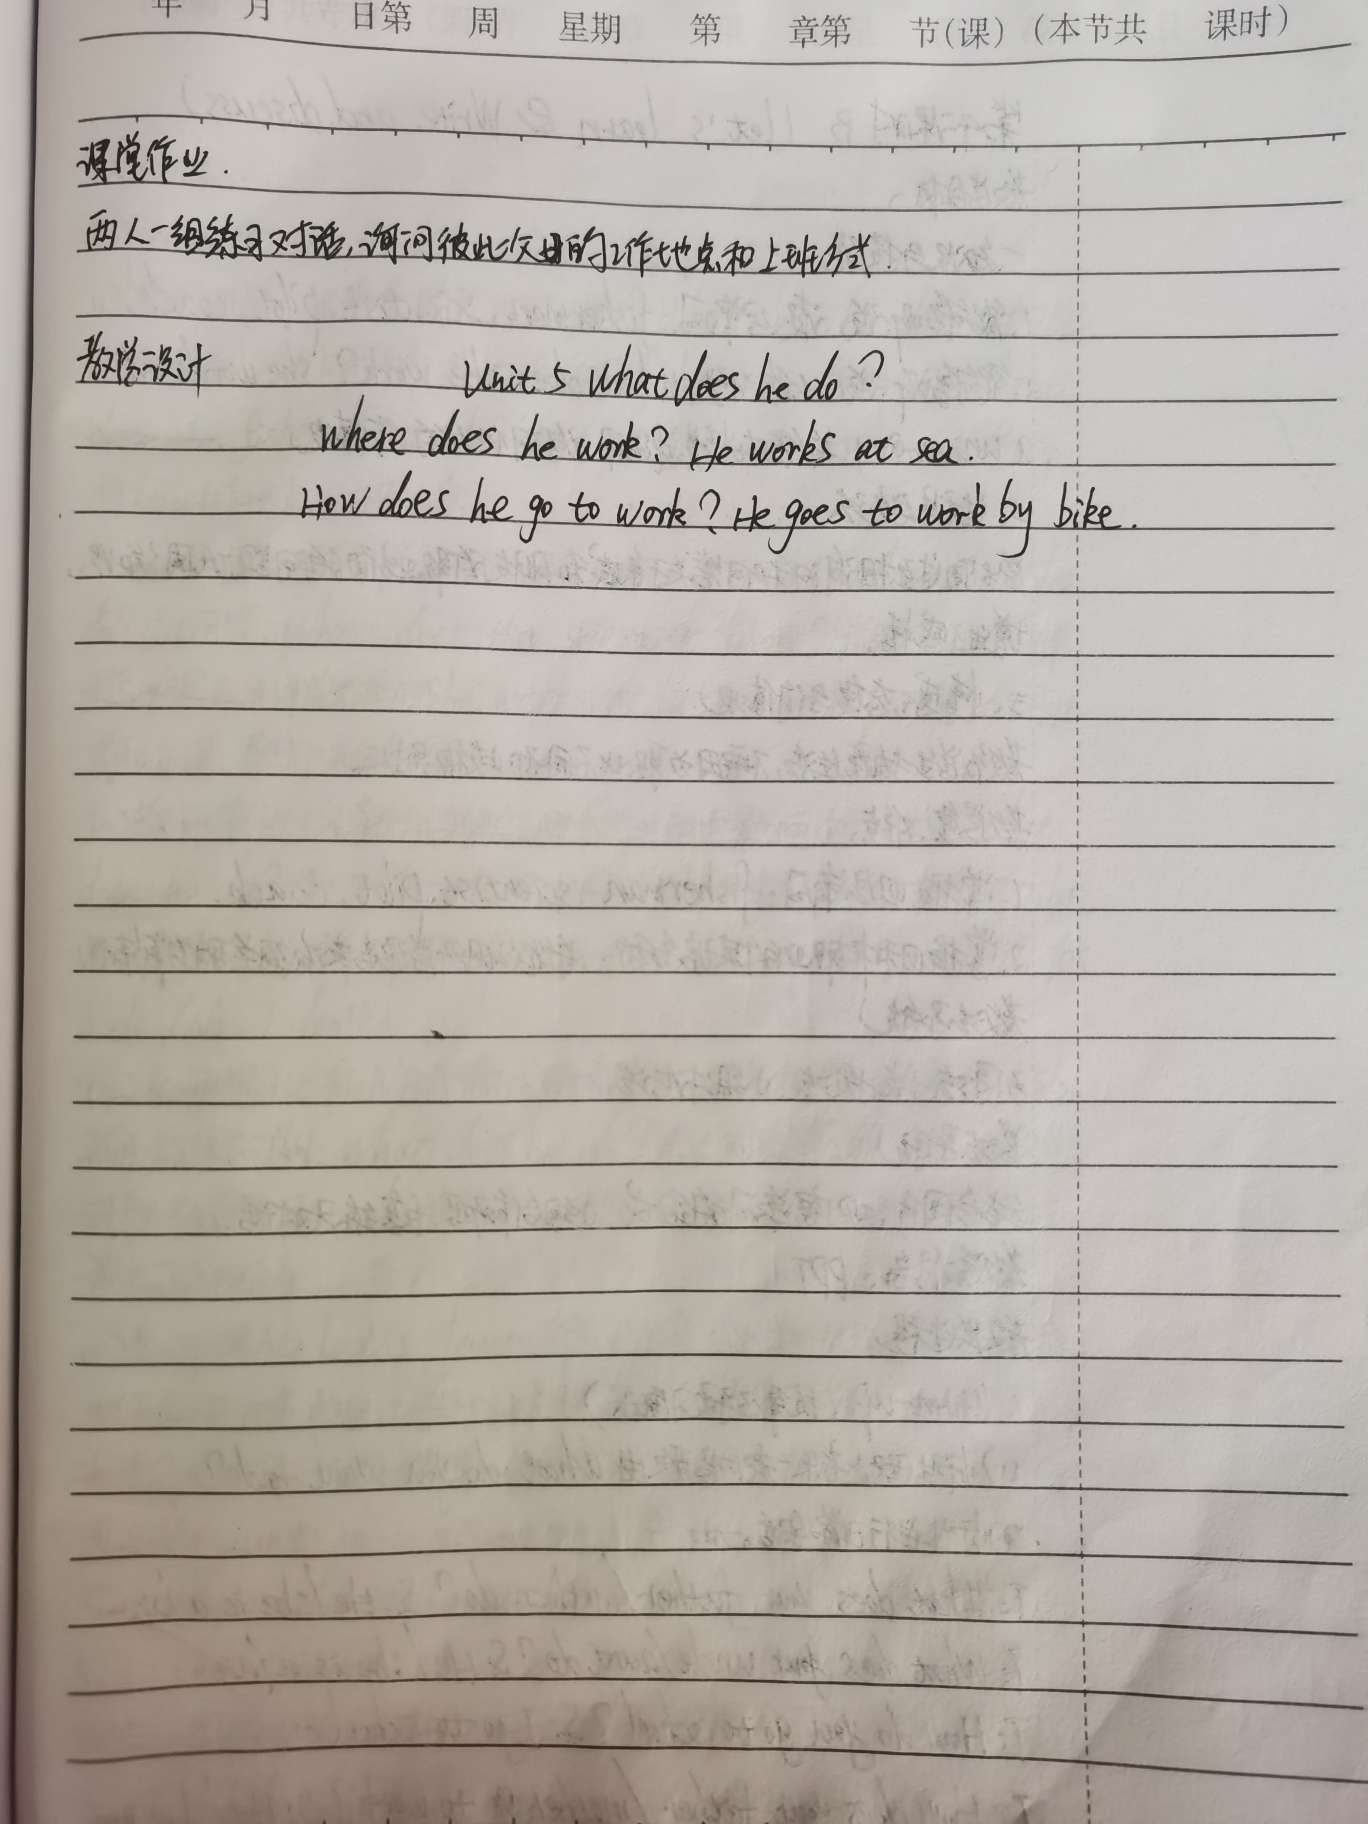 年 月 日第 周 星期 第 章第 节(课) (本节共 课时)
课堂作业.
两人一组练习对话,询问彼此父母的工作地点和上班方式.
教学设计
Unit 5 What does he do?
where does he work? He works at sea.
How does he go to work? He goes to work by bike.